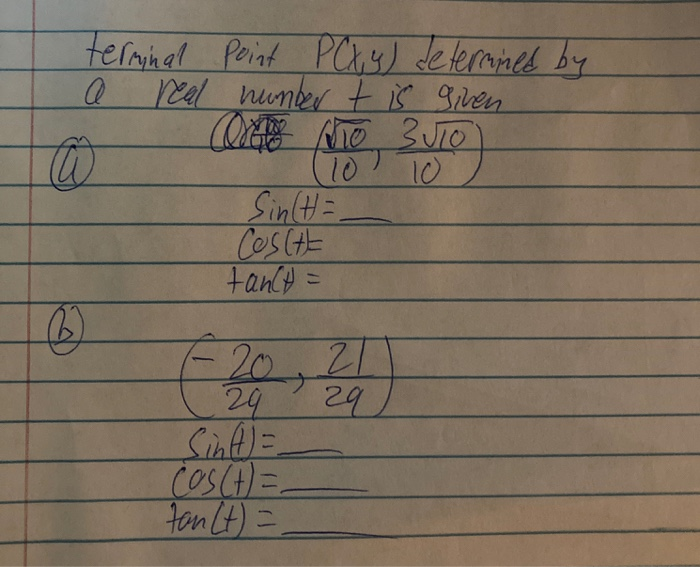 terminal point P(x,y) determined by
a real number t is given
(a) (√10/10, 3√10/10)
sin(t)= __
cos(t)=
tan(t) =
(b)
(-20/29, 21/29)
sin(t) = __
cos(t) = __
tan(t) = __